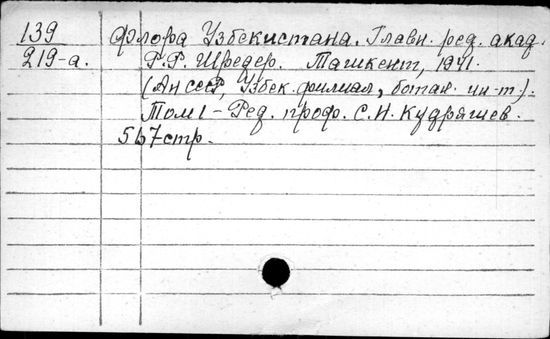 139 Флора Узбекистана. Главн. ред. акад.
219-а. Р.Р. Шредер. Ташкент, 1941.
(Ан СССР, Узбек. филиал, ботан. ин-т).
Том 1 - Ред. проф. С.Н. Кудряшев.
567 стр.